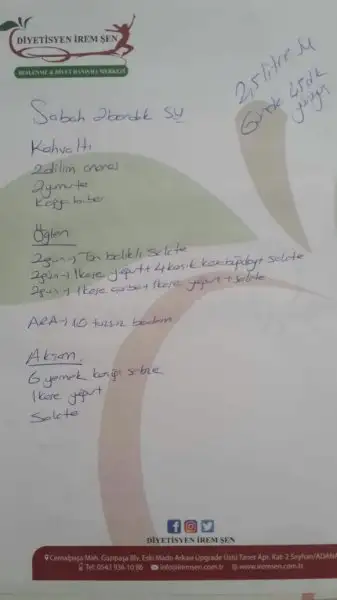 DİYETİSYEN İREM ŞEN
BESLENME & DİYET DANIŞMA MERKEZİ
2,5 litre
Günde 45 dk
yürüyüş
Sabah 2 bardak su
Kahvaltı
2 dilim
2 yumurta
Öğlen
2 gün → Ton balıklı salata
2 gün → 1 kase yoğurt + 4 kaşık + salata
2 gün → 1 kase çorba + 1 kase yoğurt + salata
ARA → 10 tuzsuz badem
Akşam
6 yemek kaşığı sebze
1 kase yoğurt
Salata
DİYETİSYEN İREM ŞEN
Cemalpaşa Mah. Gazipaşa Blv. Eski Mado Arkası Upgrade Üstü Taner Apt. Kat: 2 Seyhan/ADANA
Tel: 0542 936 10 86 info@iremsen.com.tr www.iremsen.com.tr